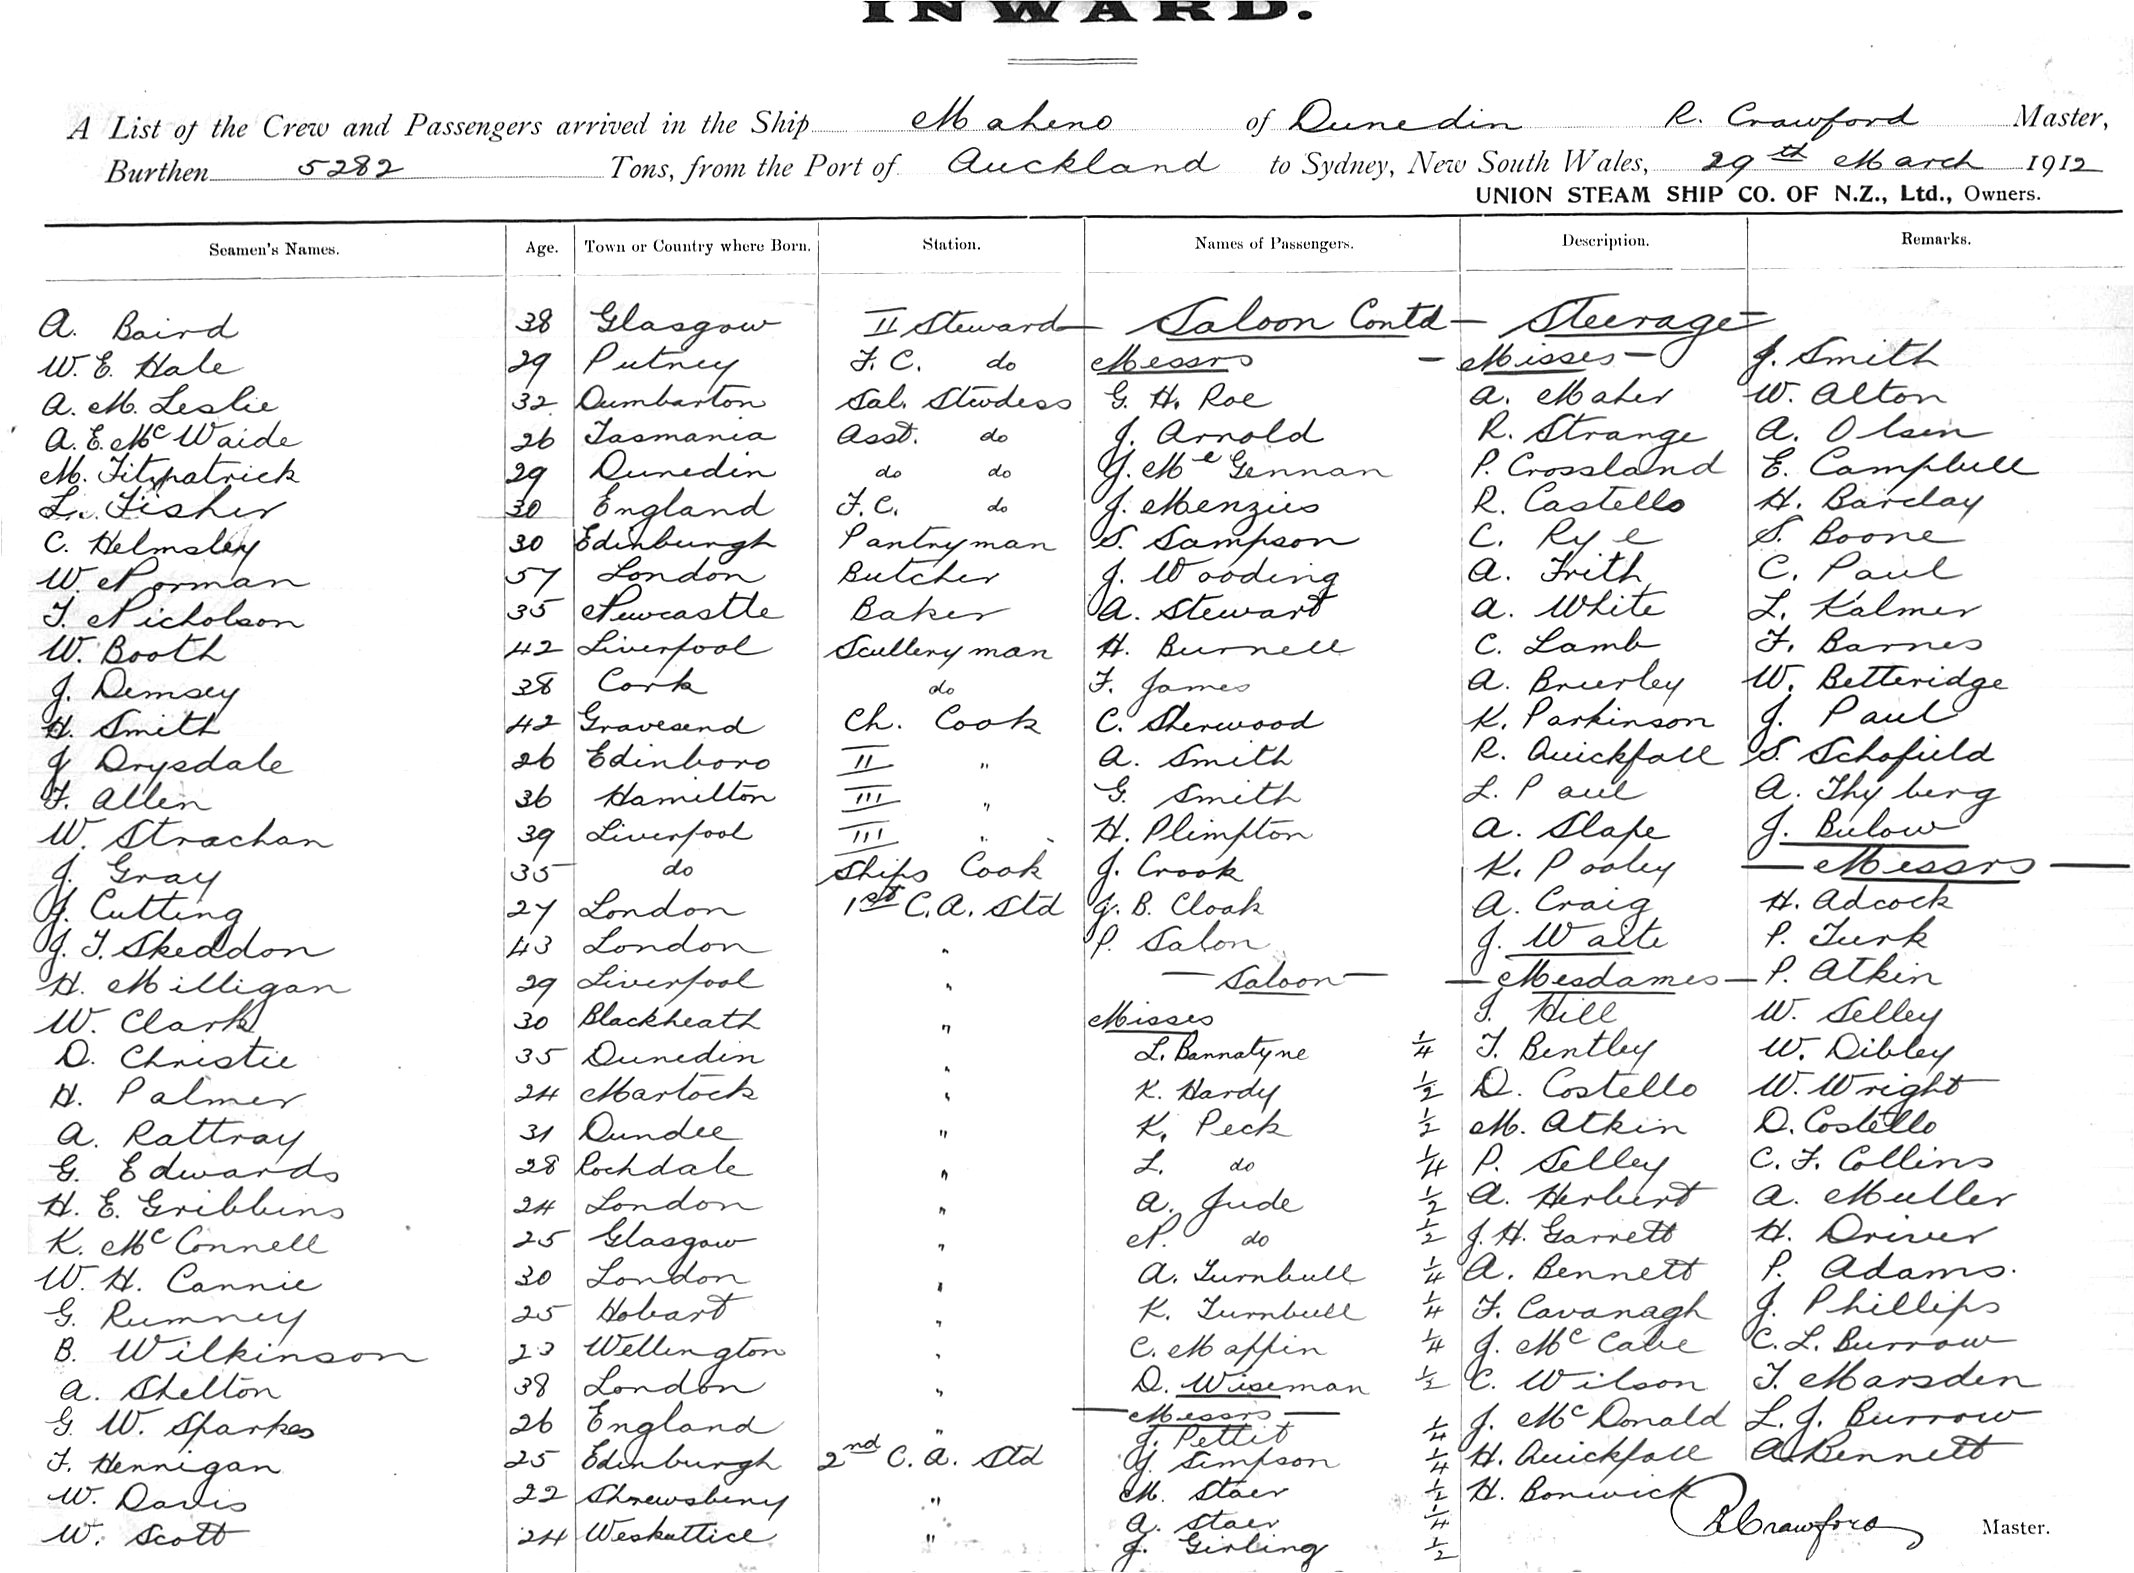 INWARD.
A List of the Crew and Passengers arrived in the Ship Maheno of Dunedin R. Crawford Master,
Burthen 5282 Tons, from the Port of Auckland to Sydney, New South Wales, 29th March 1912
UNION STEAM SHIP CO. OF N.Z., Ltd., Owners.
Seamen's Names. Age. Town or Country where Born. Station. Names of Passengers. Description. Remarks.
A. Baird 38 Glasgow II Steward Saloon Contd Steerage
W. E. Hale 29 Putney F. C. do Messrs Misses J. Smith
A. M. Leslie 32 Dumbarton Sal. Stwdess G. H. Roe A. Maher W. Alton
A. E. Mc Waide 26 Tasmania Asst. do J. Arnold R. Strange A. Olsen
M. Fitzpatrick 29 Dunedin do do J. Mc Gennan P. Crossland E. Campbell
L. Fisher 30 England F. C. do J. Menzies R. Castello H. Barclay
C. Helmsley 30 Edinburgh Pantryman S. Sampson C. Rye S. Boone
W. Norman 57 London Butcher J. Wooding A. Frith C. Paul
T. Nicholson 35 Newcastle Baker A. Stewart A. White L. Kalmer
W. Booth 42 Liverpool Sculleryman H. Burnell C. Lamb F. Barnes
J. Demsey 38 Cork do F. James A. Brierley W. Betteridge
H. Smith 42 Gravesend Ch. Cook C. Sherwood K. Parkinson J. Paul
J Drysdale 26 Edinboro II " A. Smith R. Quickfall S. Schofield
F. Allen 36 Hamilton III " G. Smith L. Paul A. Thyberg
W. Strachan 39 Liverpool III " H. Plimpton A. Slape J. Bulow
J. Gray 35 do Ships Cook J. Crook K. Pooley Messrs
J. Cutting 27 London 1st C. A. Std J. B. Cloak A. Craig H. Adcock
J. T. Skeddon 43 London " P. Salon J. Waite P. Turk
H. Milligan 29 Liverpool " Saloon Mesdames P. Atkin
W. Clark 30 Blackheath " Misses T. Hill W. Selley
D. Christie 35 Dunedin " L. Bannatyne 1/4 T. Bentley W. Dibley
H. Palmer 24 Martock " K. Hardy 1/2 D. Costello W. Wright
A. Rattray 31 Dundee " K. Peck 1/2 M. Atkin D. Costello
G. Edwards 28 Rochdale " L. do 1/4 P. Selley C. F. Collins
H. E. Gribbins 24 London " A. Jude 1/2 A. Herbert A. Muller
K. Mc Connell 25 Glasgow " N. do 1/2 J. H. Garrett H. Driver
W. H. Cannie 30 London " A. Turnbull 1/4 A. Bennett P. Adams.
G. Rumney 25 Hobart " K. Turnbull 1/4 F. Cavanagh J. Phillips
B. Wilkinson 23 Wellington " C. Maffin 1/4 J. Mc Cabe C. L. Burrow
A. Shelton 38 London " D. Wiseman 1/2 C. Wilson T. Marsden
G. W. Sparkes 26 England " Messrs J. Mc Donald L. J. Burrow
J. Pettit 1/4
F. Hennigan 25 Edinburgh 2nd C. A. Std J. Simpson 1/4 H. Quickfall A. Bennett
W. Davis 22 Shrewsbery " M. Staer 1/2 H. Bonwick
A. Staer 1/4 R Crawford Master.
W. Scott 24 " J. Girling 1/2